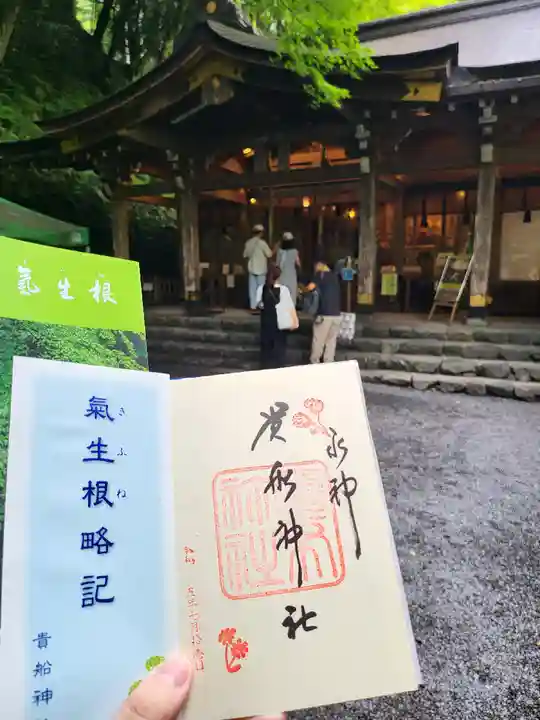 氣生根
氣生根略記
きふね
貴船神
水神
貴船神社